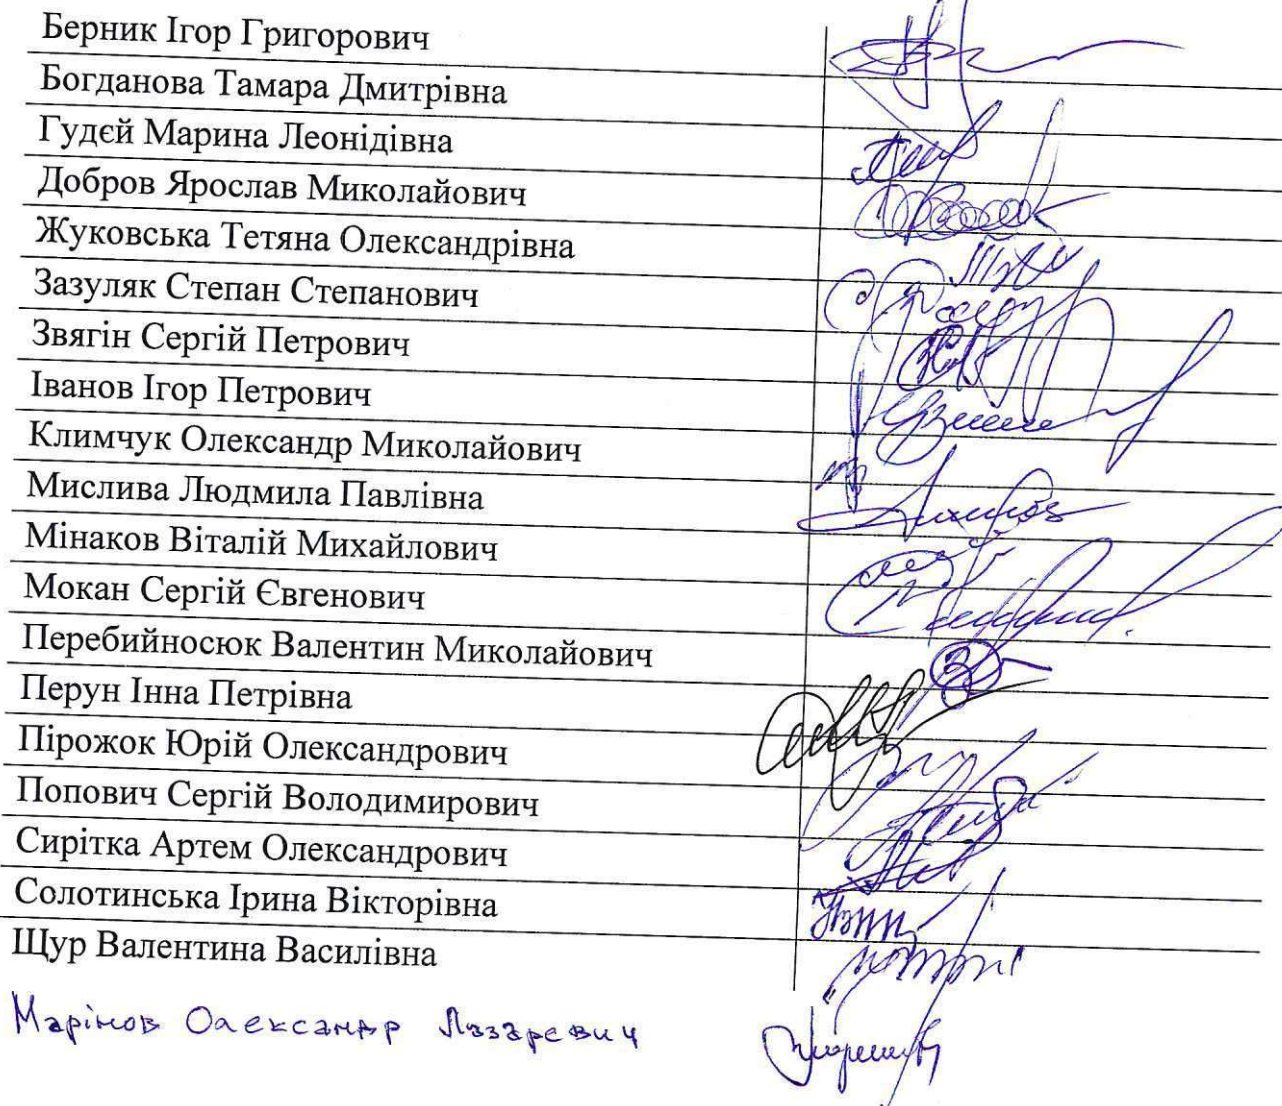 Берник Ігор Григорович
Богданова Тамара Дмитрівна
Гудєй Марина Леонідівна
Добров Ярослав Миколайович
Жуковська Тетяна Олександрівна
Зазуляк Степан Степанович
Звягін Сергій Петрович
Іванов Ігор Петрович
Климчук Олександр Миколайович
Мислива Людмила Павлівна
Мінаков Віталій Михайлович
Мокан Сергій Євгенович
Перебийносюк Валентин Миколайович
Перун Інна Петрівна
Пірожок Юрій Олександрович
Попович Сергій Володимирович
Сирітка Артем Олександрович
Солотинська Ірина Вікторівна
Щур Валентина Василівна
Марінов Олександр Лазаревич